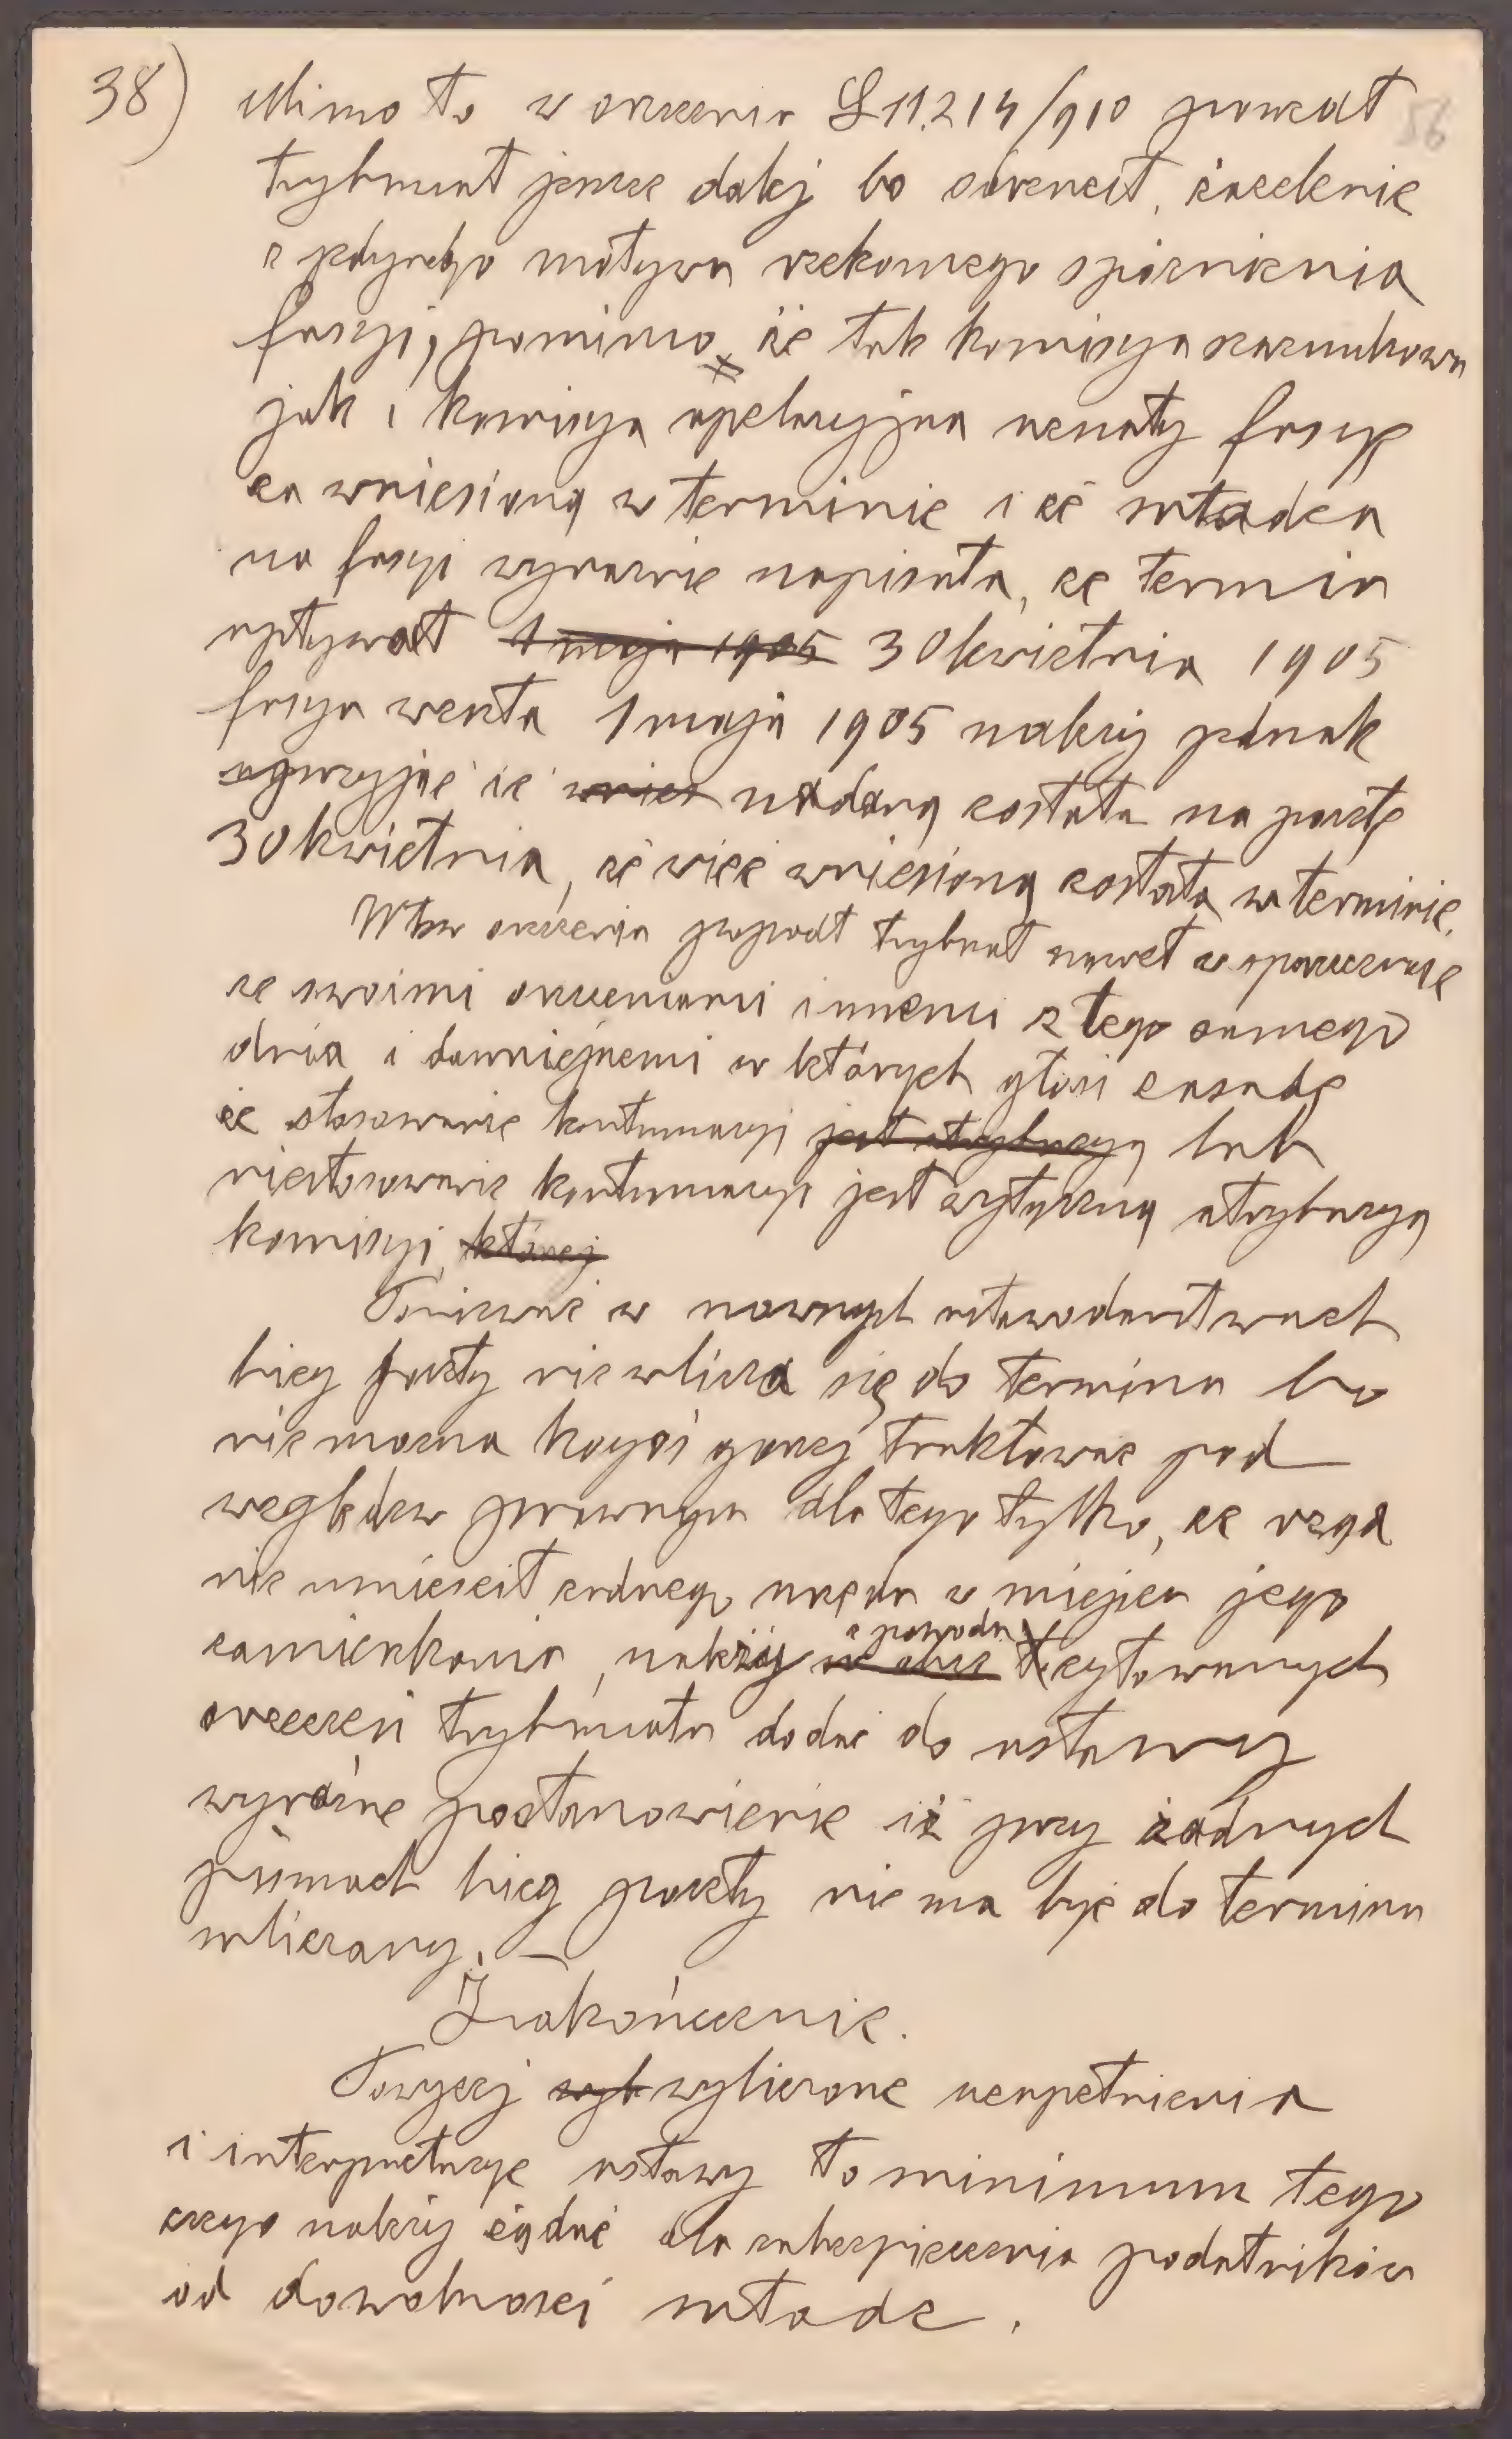 38) Mimo to w orzeczeniu L 11.214/910 poszedł 56
trybunał jeszcze dalej bo odrzucił zażalenie
z jedynego motywu rzekomego spóźnienia
fasyi, pomimo że tak komisya szacunkowa
jak i komisya apelacyjna uznały fasyę
za wniesioną w terminie i że władza
na fasyi wyraźnie napisała, że termin
upływał 1 maja 1905 30 kwietnia 1905
fasya weszła 1 maja 1905 należy jednak
przyjąć że wnies nadaną została na pocztę
30 kwietnia, że więc wniesioną została w terminie.
W tem orzeczeniu popadł trybunał nawet w sprzeczność
ze swoimi orzeczeniami innemi z tego samego
dnia i dawniejszemi w których głosi zasadę
że stosowanie kontumacyi jest atrybucyą lub
niestosowanie kontumacyi jest wyłączną atrybucyą
komisyi, której
Ponieważ w nowszych ustawodawstwach
bieg poczty nie wlicza się do terminu bo
nie można kogoś gorzej traktować pod
względem prawnym dla tego tylko, że rząd
nie umieścił żadnego urzędu w miejscu jego
zamieszkania, należy z powodu cytowanych
orzeczeń trybunału dodać do ustawy
wyraźne postanowienie iż przy żadnych
pismach bieg poczty nie ma być do terminu
wliczany. —
Zakończenie.
Powyżej wyl wyliczone uzupełnienia
i interpretacye ustawy to minimum tego
czego należy żądać dla zabezpieczenia podatników
od dowolności władz.